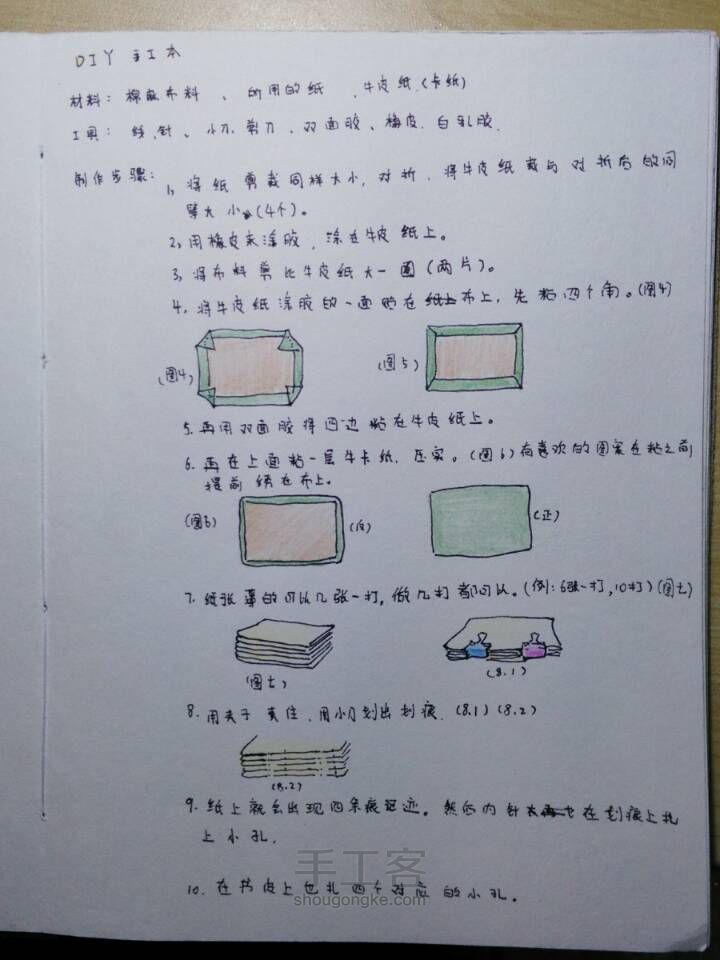 DIY 手工本
材料：棉麻布料、所用的纸、牛皮纸（卡纸）
工具：线、针、小刀、剪刀、双面胶、橡皮、白乳胶.
制作步骤：1、将纸剪裁同样大小，对折，将牛皮纸裁与对折后的同
等大小（4个）。
2、用橡皮来涂胶，涂在牛皮纸上。
3、将布料剪比牛皮纸大一圈（两片）。
4、将牛皮纸涂胶的一面贴在布上，先粘四个角。（图4）
（图4）
（图5）
5、再用双面胶将四边粘在牛皮纸上。
6、再在上面粘一层牛卡纸，压实。（图6）有喜欢的图案在粘之前
提前绣在布上。
（图6）
（反）
（正）
7、纸张薄的可以几张一打，做几打都可以。（例：6张一打，10打）（图七）
（图七）
（8.1）
8、用夹子夹住，用小刀划出划痕.（8.1）（8.2）
（8.2）
9、纸上就会出现四条痕迹。然后用针在划痕上扎
上小孔.
10、在书皮上也扎四个对应的小孔。
手工客
shougongke.com